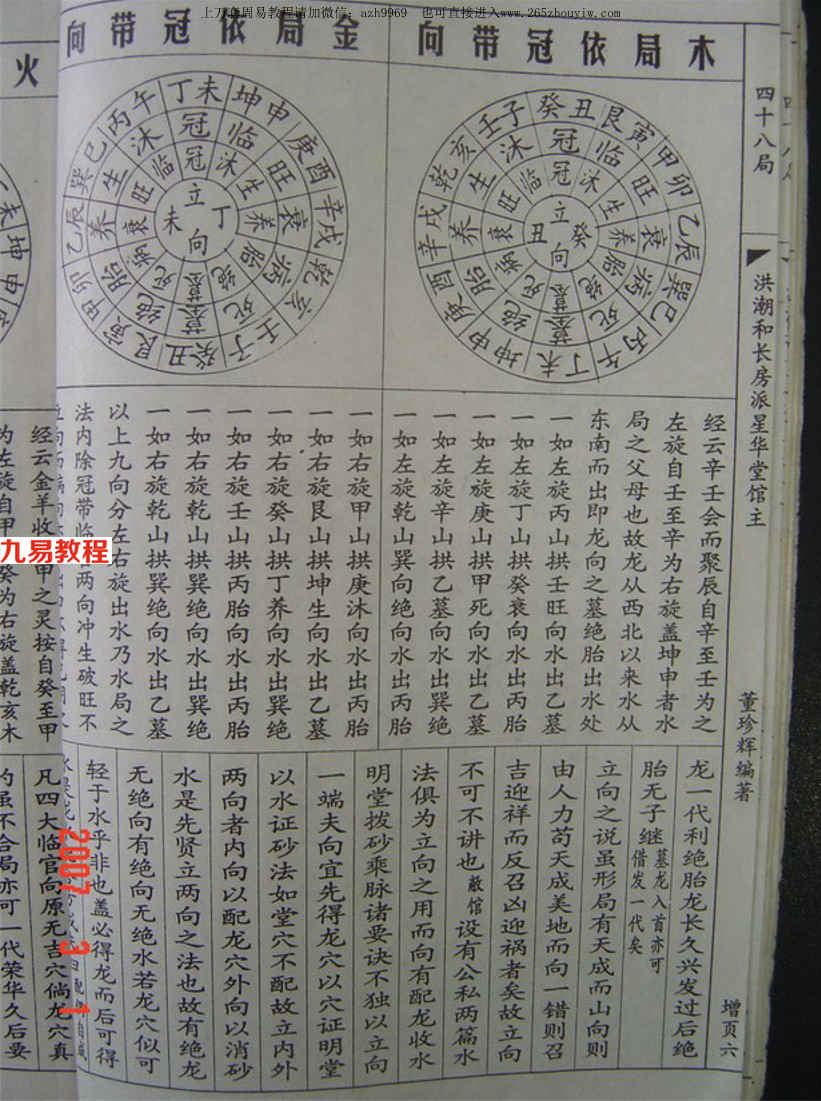 上万套周易教程请加微信：azh9969 也可直接进入www.265zhouyiw.com
四十八局
洪潮和长房派星华堂馆主
董珍辉编著
增页六
木局依冠带向
金局依冠带向
火
壬子癸丑艮寅甲卯乙辰巽巳丙午丁未坤申庚酉辛戌乾亥
冠临旺衰病死墓绝胎养生沐
冠沐生养胎绝墓死病衰旺临
立癸向丑
丙午丁未坤申庚酉辛戌乾亥壬子癸丑艮寅甲卯乙辰巽巳
冠临旺衰病死墓绝胎养生沐
冠沐生养胎绝墓死病衰旺临
立丁向未
经云辛壬会而聚辰自辛至壬为之
左旋自壬至辛为右旋盖坤申者水
局之父母也故龙从西北以来水从
东南而出即龙向之墓绝胎出水处
一如左旋丙山拱壬旺向水出乙墓
一如左旋丁山拱癸衰向水出丙胎
一如左旋庚山拱甲死向水出乙墓
一如左旋辛山拱乙墓向水出巽绝
一如左旋乾山巽向绝向水出丙胎
一如右旋甲山拱庚沐向水出丙胎
一如右旋艮山拱坤生向水出乙墓
一如右旋癸山拱丁养向水出巽绝
一如右旋壬山拱丙胎向水出丙胎
一如右旋乾山拱巽绝向水出巽绝
一如右旋乾山拱巽绝向水出乙墓
以上九向分左右旋出水乃水局之
法内除冠带临 两向冲生破旺不
经云金羊收 甲之灵按自癸至甲
为左旋自甲 癸为右旋盖乾亥木
龙一代利绝胎龙长久兴发过后绝
胎无子继墓龙入首亦可借发一代矣
立向之说虽形局有天成而山向则
由人力苟天成美地而向一错则召
吉迎祥而反召凶迎祸者矣故立向
不可不讲也敝馆设有公私两篇水
法俱为立向之用而向有配龙收水
明堂拨砂乘脉诸要诀不独以立向
一端夫向宜先得龙穴以穴证明堂
以水证砂法如堂穴不配故立内外
两向者内向以配龙穴外向以消砂
水是先贤立两向之法也故有绝龙
无绝向有绝向无绝水若龙穴似可
轻于水乎非也盖必得龙而后可得
凡四大临官向原无吉穴倘龙穴真
的虽不合局亦可一代荣华久后要
九易教程
2007 3 1